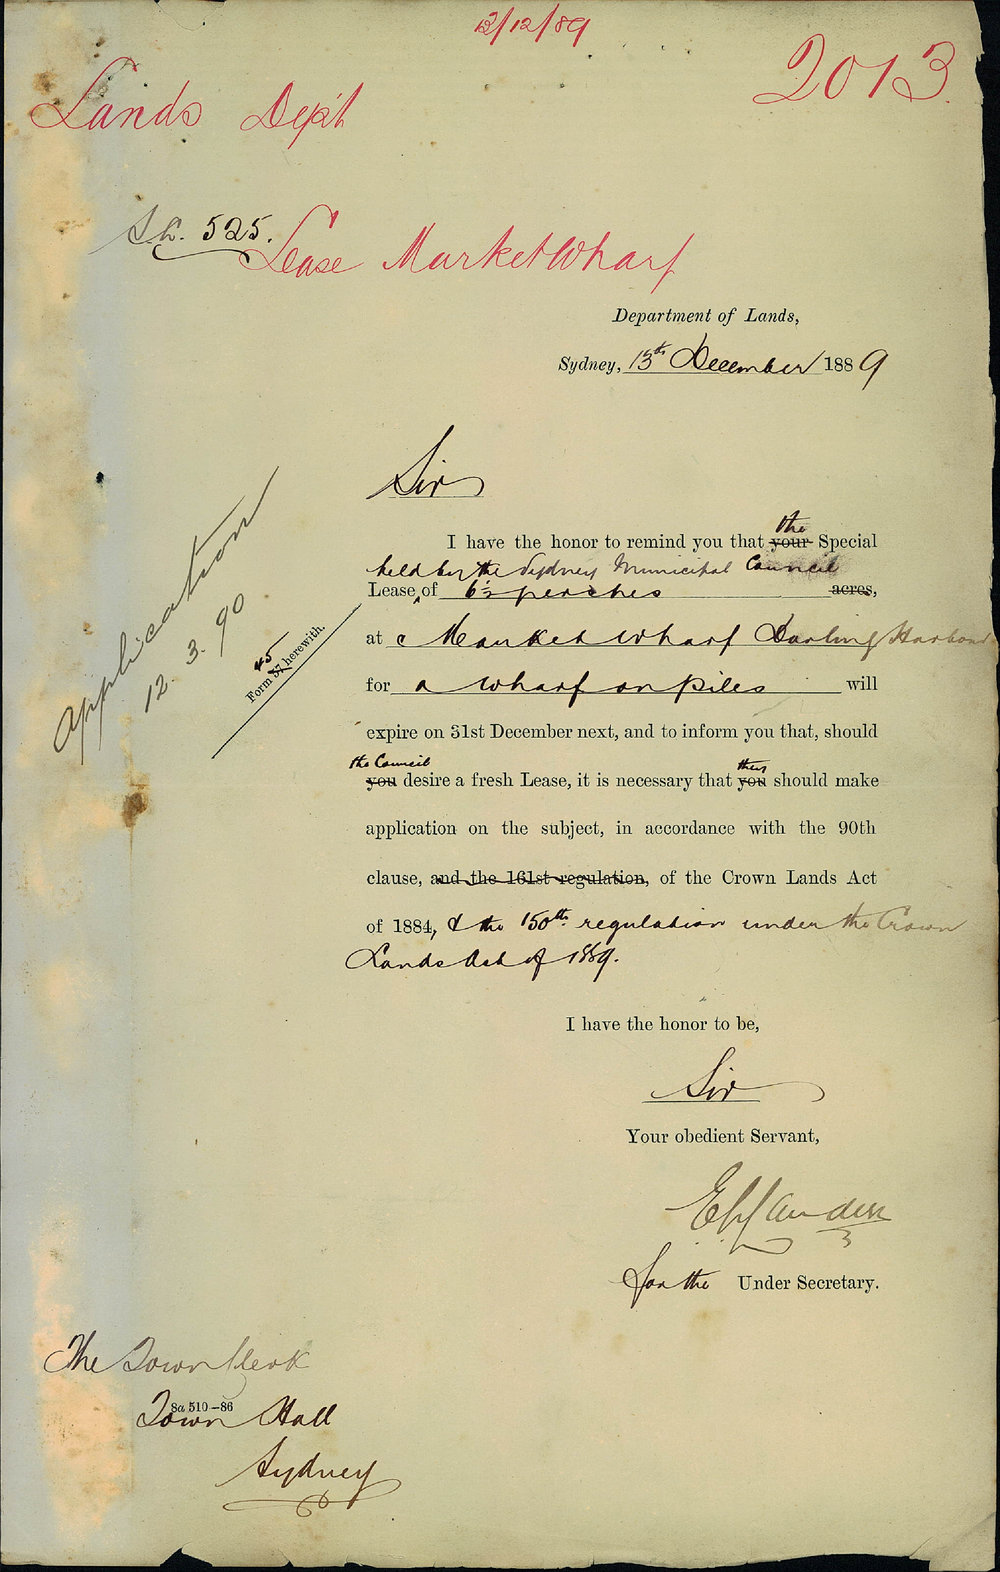 13/12/89
2013
Lands Dept
S.L. 525.
Lease Market Wharf
Department of Lands,
Sydney, 13th December 1889
Sir
the
I have the honor to remind you that your Special
held by the Sydney Municipal Council
Lease, of 6½ perches acres,
at Market Wharf Darling Harbour
for a wharf on piles will
expire on 31st December next, and to inform you that, should
the Council they
you desire a fresh Lease, it is necessary that you should make
application on the subject, in accordance with the 90th
clause, and the 161st regulation, of the Crown Lands Act
of 1884, & the 150th regulation under the Crown
Lands Act of 1889.
Application
12.3.90
45
Form 37 herewith.
I have the honor to be,
Sir
Your obedient Servant,
for the Under Secretary.
The Town Clerk
8a 510-86
Town Hall
Sydney